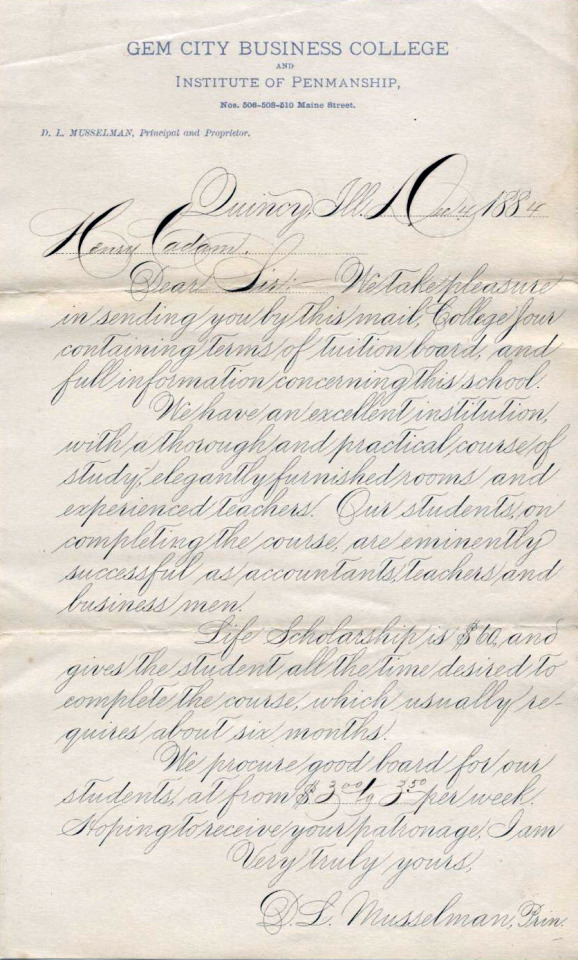 GEM CITY BUSINESS COLLEGE
AND
INSTITUTE OF PENMANSHIP,
Nos. 506-508-510 Maine Street.
D. L. MUSSELMAN, Principal and Proprietor.
Quincy, Ill. Dec 4 1884
Henry Eadam.
Dear Sir:— We take pleasure
in sending you by this mail, College Jour
containing terms of tuition board, and
full information concerning this school.
We have an excellent institution,
with a thorough and practical course of
study, elegantly furnished rooms and
experienced teachers. Our students, on
completing the course, are eminently
successful as accountants, teachers and
business men.
Life Scholarship is $60, and
gives the student all the time desired to
complete the course, which usually re-
quires about six months.
We procure good board for our
students, at from $3.00 to 3.50 per week.
Hoping to receive your patronage, I am
Very truly yours,
D. L. Musselman, Prin.